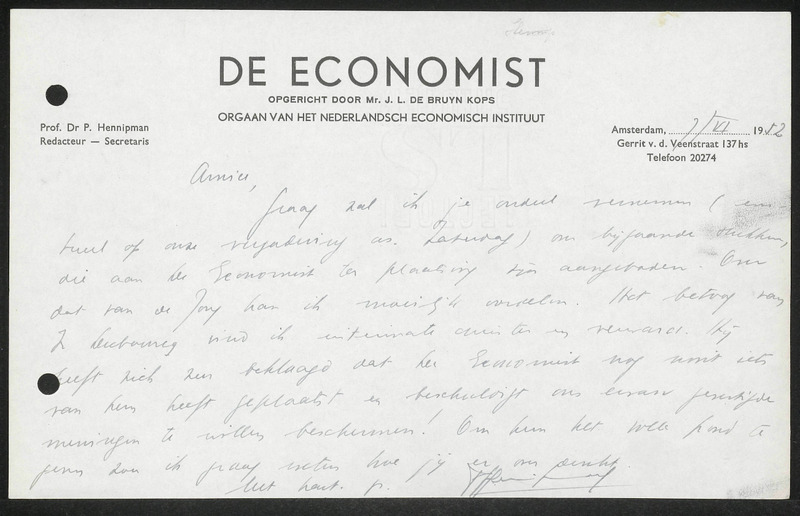 DE ECONOMIST
OPGERICHT DOOR Mr. J. L. DE BRUYN KOPS
ORGAAN VAN HET NEDERLANDSCH ECONOMISCH INSTITUUT
Prof. Dr P. Hennipman
Redacteur — Secretaris
Amsterdam, 7/VI 1952
Gerrit v. d. Veenstraat 137 hs
Telefoon 20274
Amice,
Graag zal ik je oordeel vernemen (even
tueel op onze vergadering as. Zaterdag) over bijgaande stukken,
die aan de Economist ter plaatsing zijn aangeboden. Over
dat van de Jong kan ik moeilijk oordelen. Het betoog van
vind ik uitermate duister en verward. Hij
heeft zich zeer beklaagd dat de Economist nog nooit iets
van hem heeft geplaatst en beschuldigt ons ervan gevestigde
meningen te willen beschermen! Om hem het volle pond te
geven zou ik graag weten hoe jij er over denkt.
Met hart. gr.